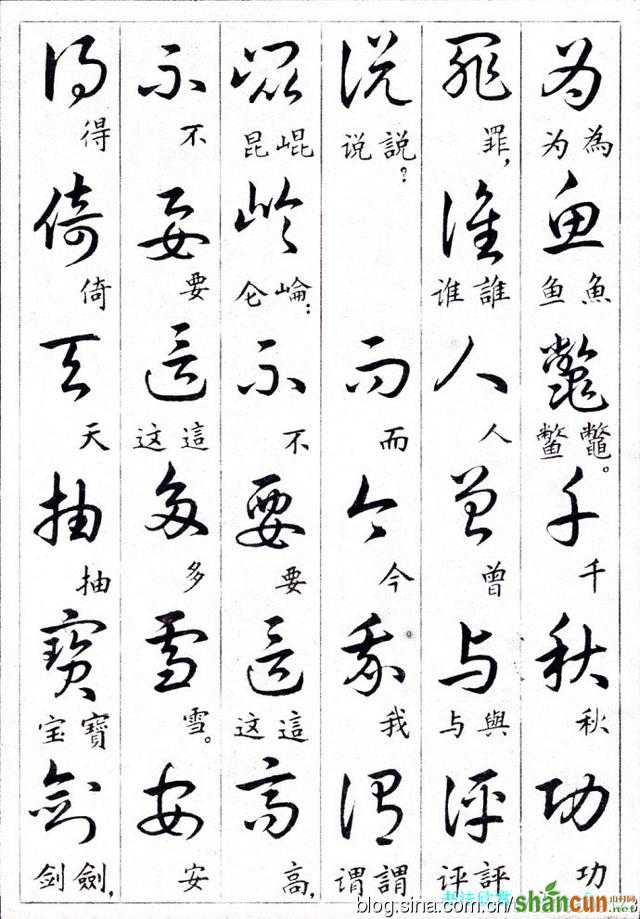 為魚鼈千秋功
为為 鱼魚 鳖鼈。 千 秋 功
罪誰人曾与評
罪, 谁誰 人 曾 与與 评評
説而今我謂
说説? 而 今 我 谓謂
崐崘不要這高
昆崐 仑崘: 不 要 这這 高,
不要這多雪安
不 要 这這 多 雪。 安
得倚天抽寶劍
得 倚 天 抽 宝寶 剑劍,
blog.sina.com.cn/
shancun
山村网
.net